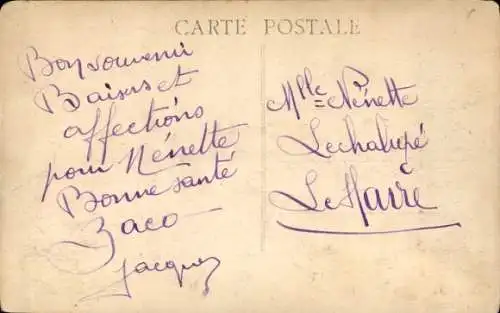 CARTE POSTALE
Bon souvenir
Baisers et
affections
pour Nénette
Bonne santé
Zaco
Jacques
Mlle Nénette
Lechalupé
Le Havre